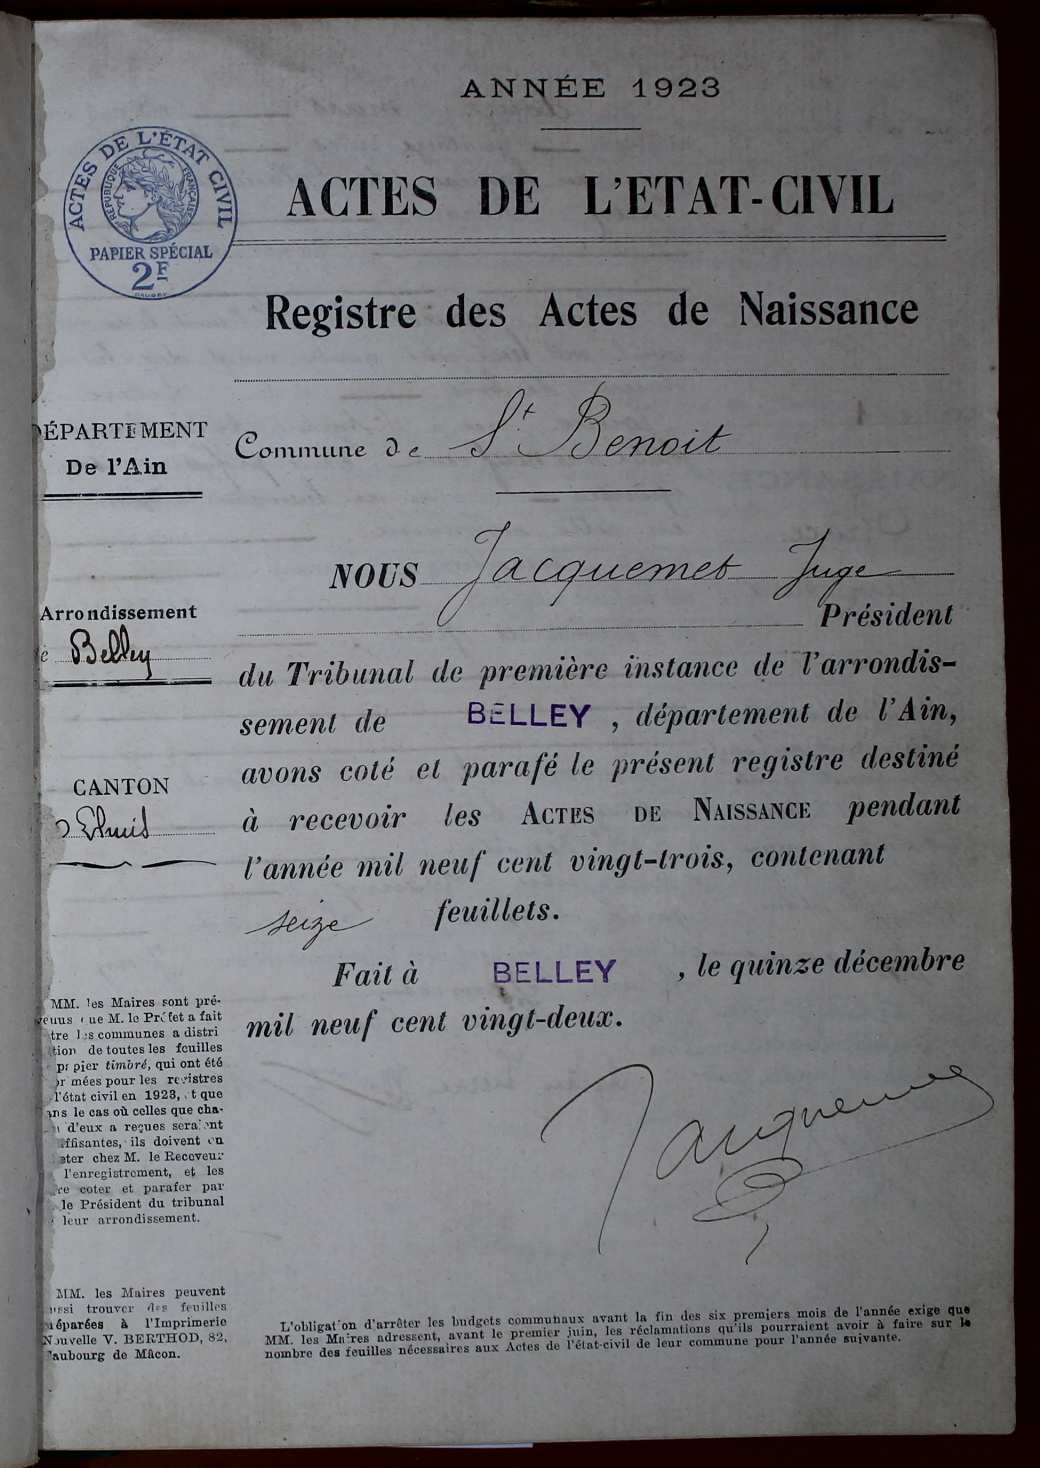 ANNÉE 1923
ACTES DE L'ÉTAT CIVIL
RÉPUBLIQUE FRANÇAISE
PAPIER SPÉCIAL
2F
ACTES DE L'ETAT-CIVIL
Registre des Actes de Naissance
DÉPARTEMENT
De l'Ain
Commune de St Benoit
Arrondissement
Belley
CANTON
NOUS Jacquemet Juge
Président
du Tribunal de première instance de l'arrondis-
sement de BELLEY, département de l'Ain,
avons coté et parafé le présent registre destiné
à recevoir les ACTES DE NAISSANCE pendant
l'année mil neuf cent vingt-trois, contenant
seize feuillets.
Fait à BELLEY, le quinze décembre
mil neuf cent vingt-deux.
Jacquemet
MM. les Maires sont pré-
venus que M. le Préfet a fait
tre les communes a distri
tion de toutes les feuilles
papier timbré, qui ont été
mées pour les registres
l'état civil en 1923, et que
ans le cas où celles que cha-
d'eux a reçues seraient
ffisantes, ils doivent en
ater chez M. le Receveur
l'enregistrement, et les
re coter et parafer par
le Président du tribunal
leur arrondissement.
MM. les Maires peuvent
ussi trouver des feuilles
éparées à l'Imprimerie
Nouvelle V. BERTHOD, 82,
faubourg de Mâcon.
L'obligation d'arrêter les budgets communaux avant la fin des six premiers mois de l'année exige que
MM. les Maires adressent, avant le premier juin, les réclamations qu'ils pourraient avoir à faire sur le
nombre des feuilles nécessaires aux Actes de l'état-civil de leur commune pour l'année suivante.